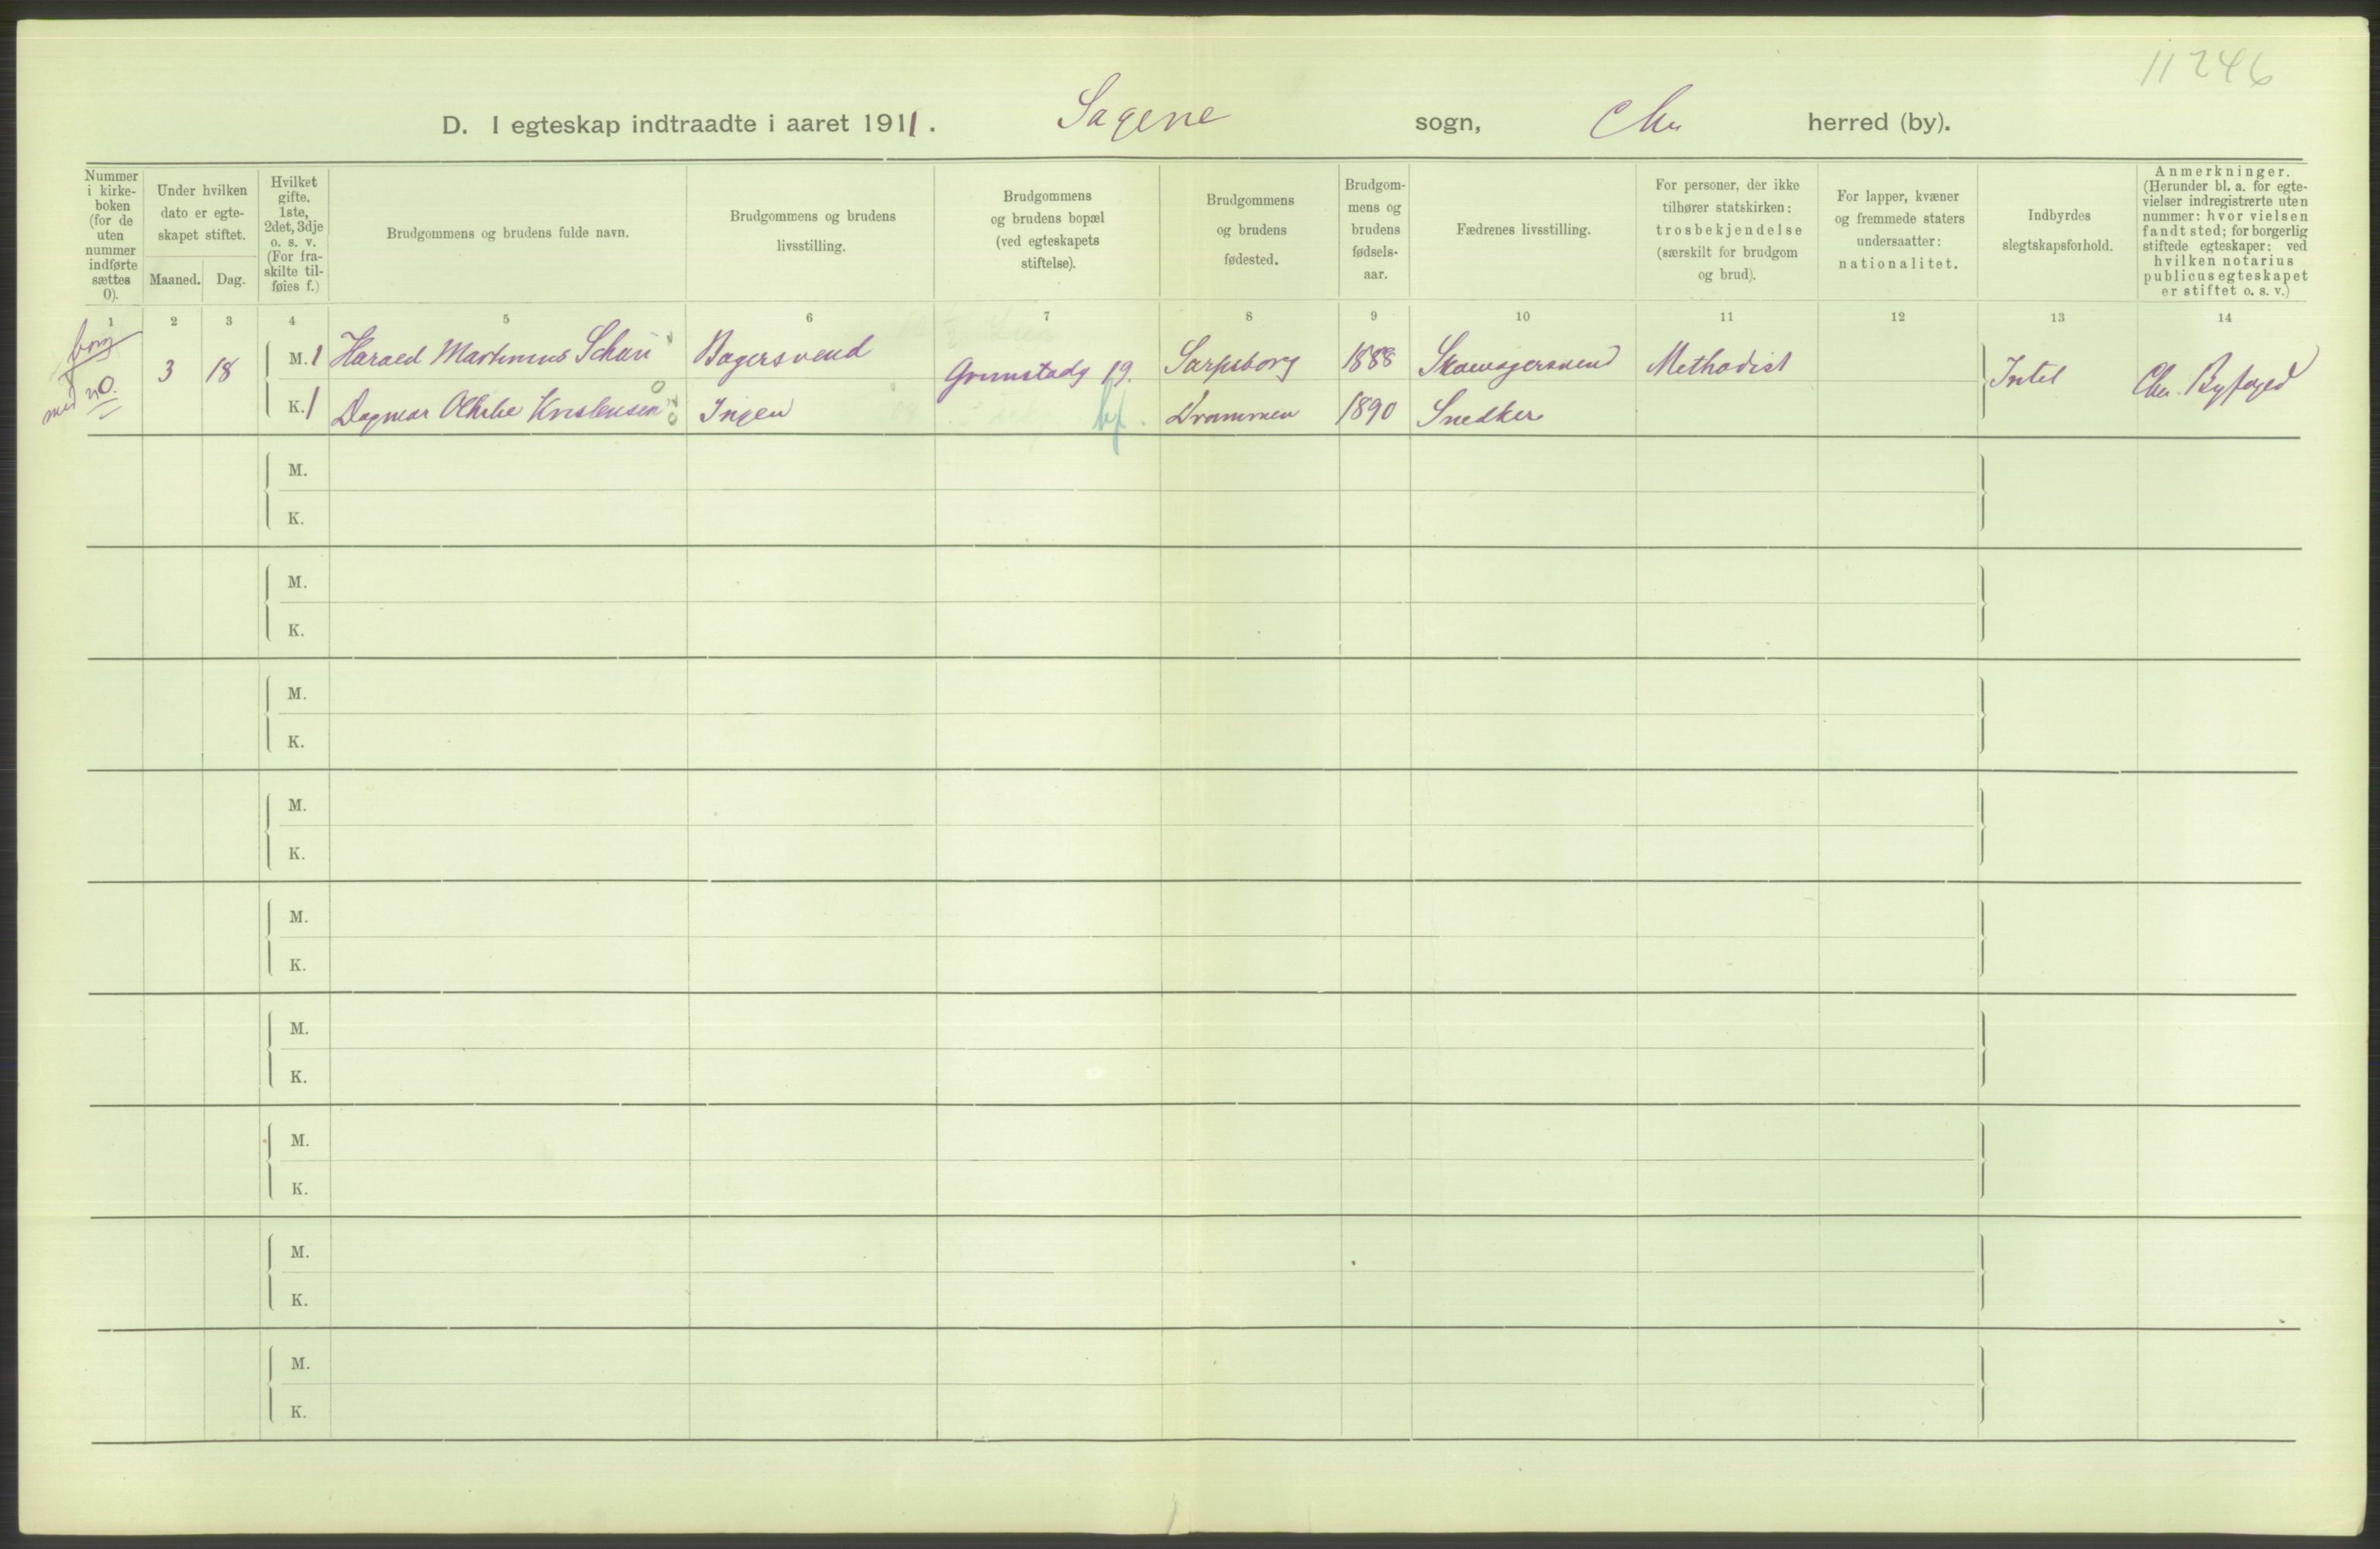 11246
D. I egteskap indtraadte i aaret 1911. Sagene sogn, Chr herred (by).
Nummer i kirkeboken (for de uten nummer indførte sættes 0).
Under hvilken dato er egteskapet stiftet.
Maaned. Dag.
Hvilket gifte. 1ste, 2det, 3dje o. s. v. (For fraskilte tilføies f.)
Brudgommens og brudens fulde navn.
Brudgommens og brudens livsstilling.
Brudgommens og brudens bopæl (ved egteskapets stiftelse).
Brudgommens og brudens fødested.
Brudgommens og brudens fødselsaar.
Fædrenes livsstilling.
For personer, der ikke tilhører statskirken: trosbekjendelse (særskilt for brudgom og brud).
For lapper, kvæner og fremmede staters undersaatter: nationalitet.
Indbyrdes slegtskapsforhold.
Anmerkninger. (Herunder bl. a. for egtevielser indregistrerte uten nummer: hvor vielsen fandt sted; for borgerlig stiftede egteskaper: ved hvilken notarius publicus egteskapet er stiftet o. s. v.)
1 2 3 4 5 6 7 8 9 10 11 12 13 14
borg
med no.
3 18 M. 1 Harald Martinius Bagersvend Grimstadg 19. Sarpsborg 1888 Methodist Intet Chr. Byfoged
K. 1 Dagmar Kristensen Ingen bf. Drammen 1890 Snedker
M.
K.
M.
K.
M.
K.
M.
K.
M.
K.
M.
K.
M.
K.
M.
K.
M.
K.